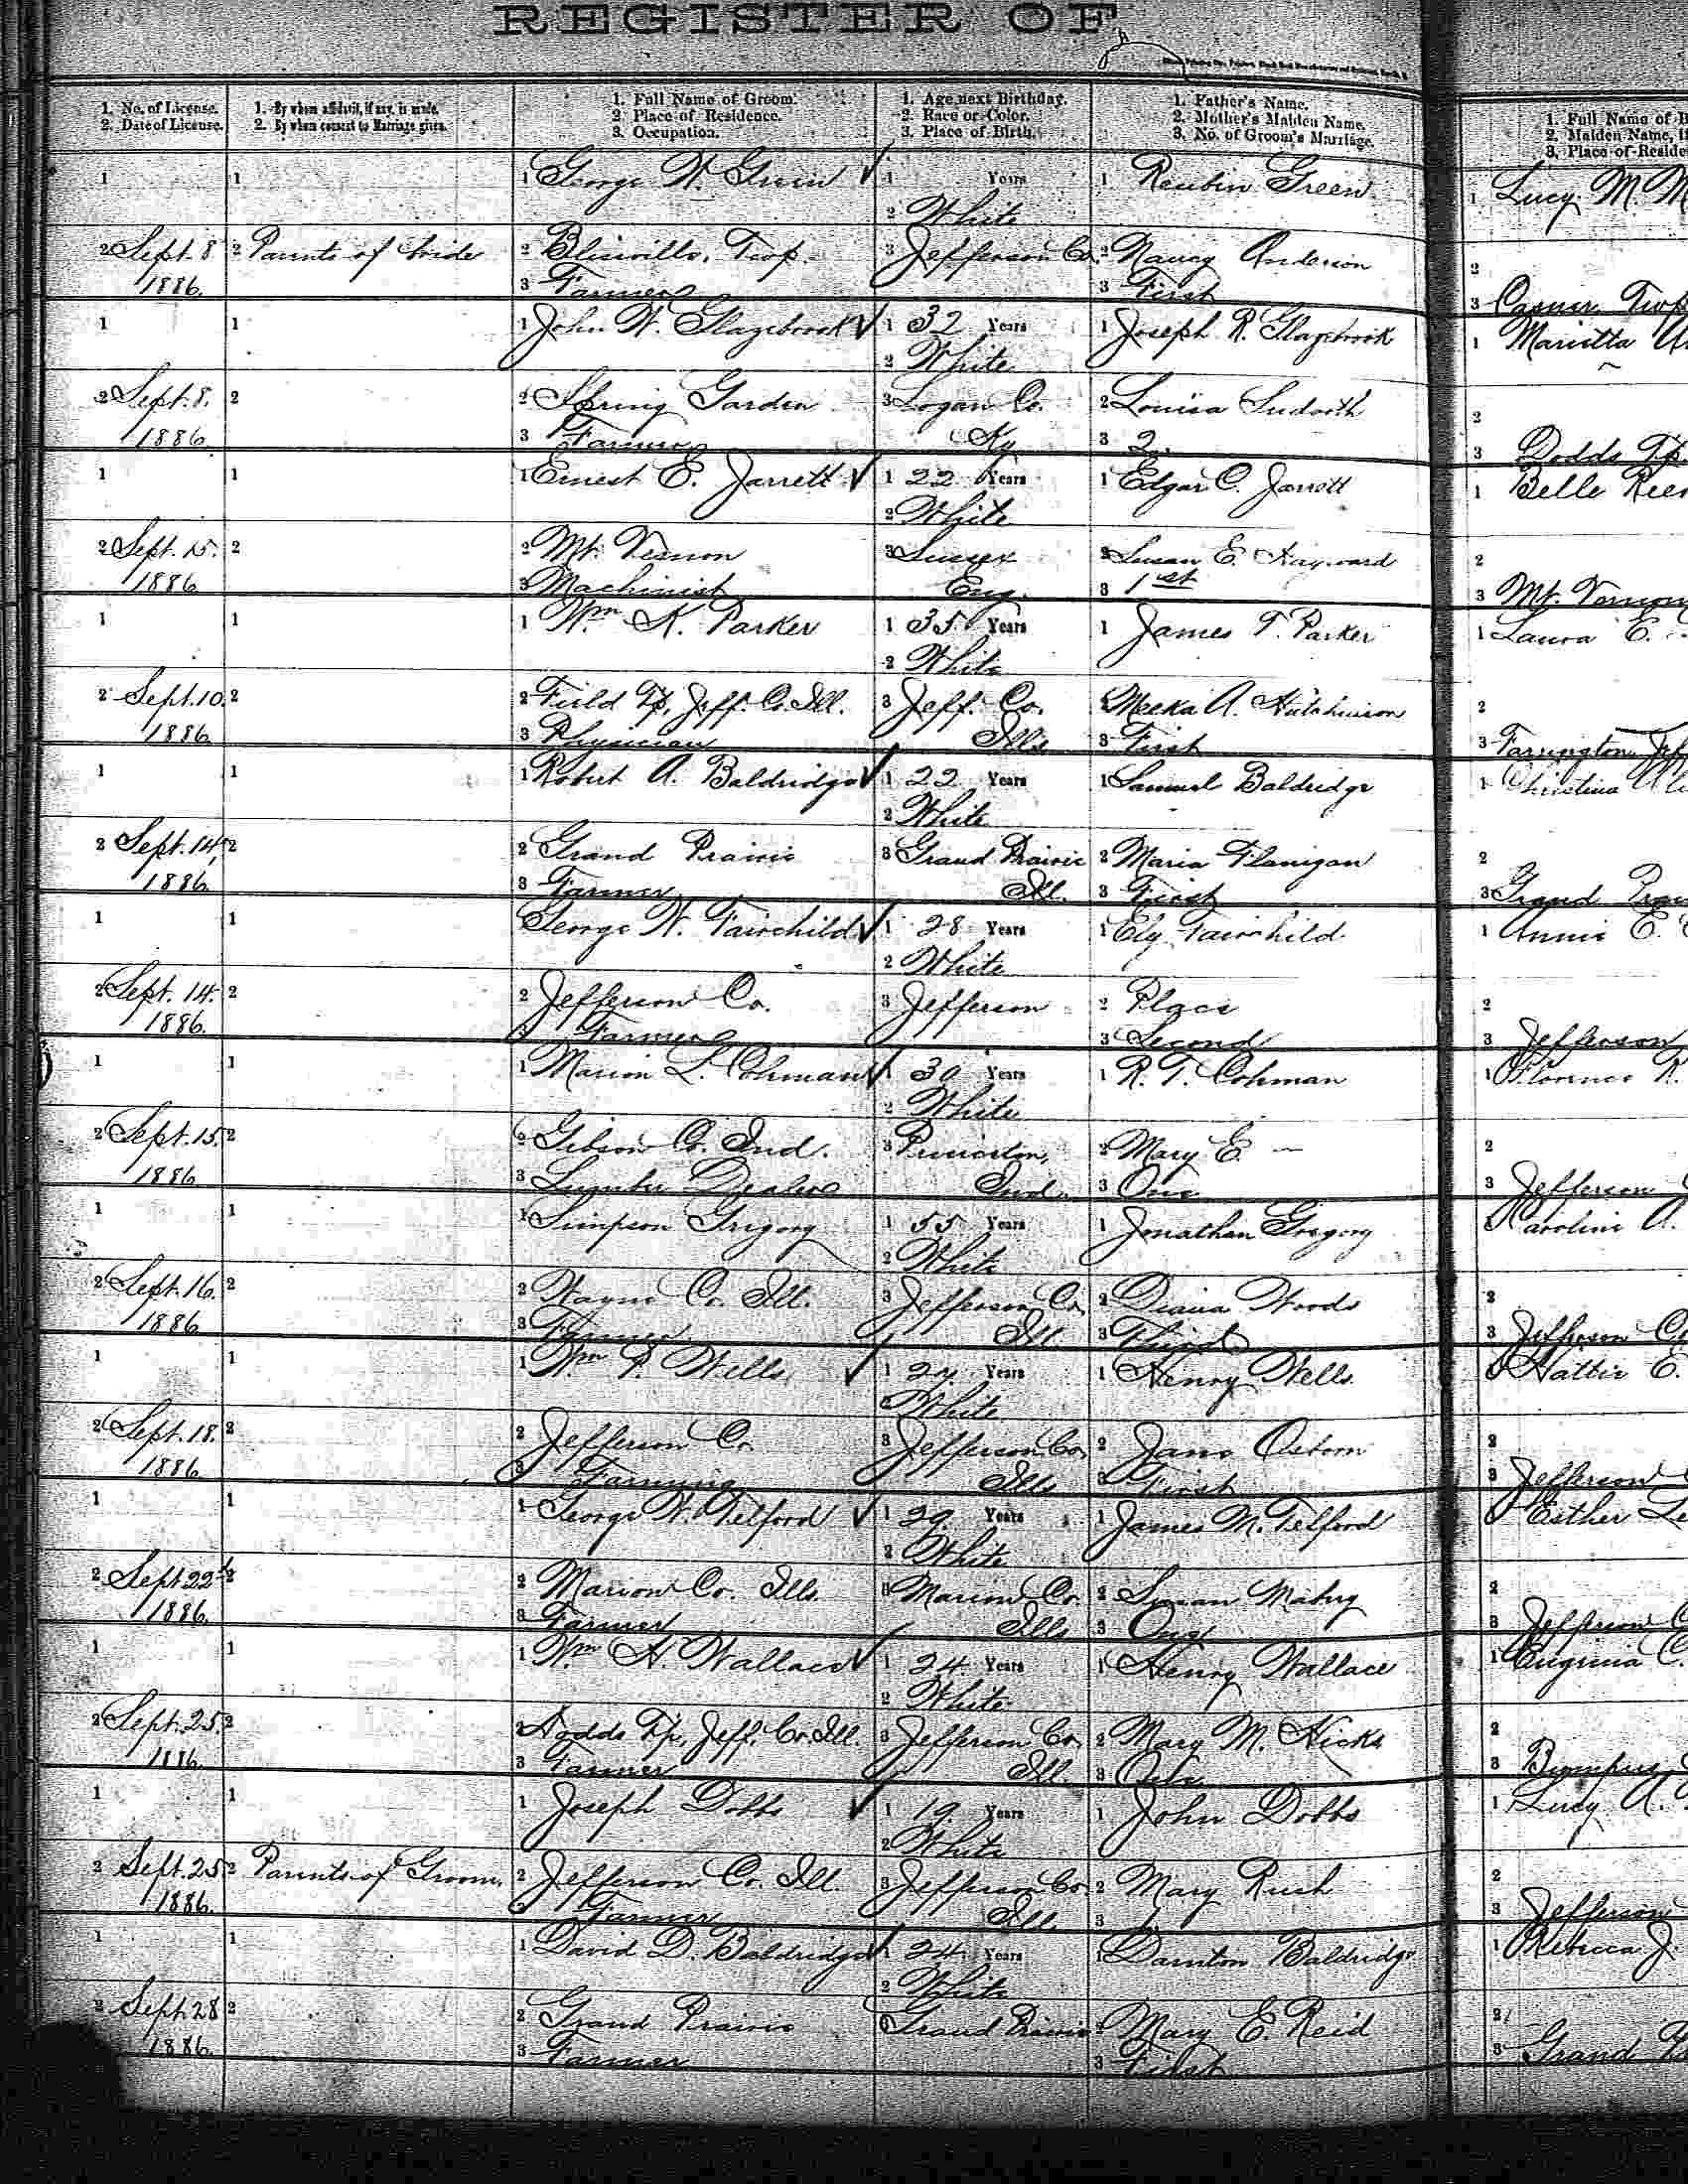 REGISTER OF
1. No. of License.
2. Date of License.
1. By whom affidavit, if any, is made.
2. By whom consent to Marriage given.
1. Full Name of Groom.
2. Place of Residence.
3. Occupation.
1. Age next Birthday.
2. Race or Color.
3. Place of Birth.
1. Father's Name.
2. Mother's Maiden Name.
3. No. of Groom's Marriage.
1. Full Name of B
2. Maiden Name, if
3. Place of Reside
1 1 1 George W. Green ✓ 1 Years 1 Reubin Green 1 Lucy M. M
2 White
2 Sept. 8 2 Parents of bride 2 Twp. 3 Jefferson Co. 2 Nancy Anderson 2
1886. 3 Farmer 3 First 3 Casner Twp
1 1 1 John W. Glazebrook ✓ 1 32 Years 1 Joseph R. Glazebrook 1 Marietta
2 White
2 Sept. 8. 2 2 Spring Garden 3 Logan Co. 2 Louisa Sudorth 2
1886. 3 Farmer Ky 3 2. 3 Dodds Tp.
1 1 1 Ernest E. Jarrett ✓ 1 22 Years 1 Edgar C. Jarrett 1 Belle
2 White
2 Sept. 15. 2 2 Mt. Vernon 3 Sussex 2 Susan E. Hayward 2
1886 3 Machinist Eng. 3 1st 3 Mt. Vernon
1 1 1 Wm K. Parker 1 35 Years 1 James T. Parker 1 Laura E.
2 White
2 Sept. 10. 2 2 Field Tp, Jeff. Co. Ill. 3 Jeff. Co. 2 Meeka A. Hutchinson 2
1886 3 Physician Ills 3 First 3 Farrington Jef
1 1 1 Robert A. Baldridge ✓ 1 22 Years 1 Samuel Baldridge 1 Christina
2 White
2 Sept. 14, 2 2 Grand Prairie 3 Grand Prairie 2 Maria Flanigan 2
1886 3 Farmer Ill. 3 First 3 Grand Prai
1 1 George W. Fairchild ✓ 1 28 Years 1 Ely Fairchild 1 Annie E.
2 White
2 Sept. 14. 2 2 Jefferson Co. 3 Jefferson 2 Place 2
1886. 3 Farmer 3 Second 3 Jefferson
1 1 1 Marion L. Cohman ✓ 1 30 Years 1 R. T. Cohman 1 Florence R.
2 White
2 Sept. 15. 2 2 Gibson Co. Ind. 3 Princeton, 2 Mary E. — 2
1886 3 Lumber Dealer Ind. 3 One 3 Jefferson
1 1 1 Simpson Grigory 1 55 Years 1 Jonathan Gregory Caroline A.
2 White
2 Sept. 16. 2 2 Wayne Co. Ill. 3 Jefferson Co. 2 Diana Woods 2
1886 3 Farmer Ill. 3 Third 3 Jefferson Co
1 1 1 Wm P. Wells ✓ 1 24 Years 1 Henry Wells Hattie E.
White
2 Sept. 18. 2 2 Jefferson Co. 3 Jefferson Co, 2 Jane Osborn 2
1886 3 Farming Ills 3 First 3 Jefferson
1 1 1 George W. Telford ✓ 1 29 Years 1 James M. Telford Esther Le
2 White
2 Sept 22d 2 2 Marion Co. Ills. 3 Marion Co. 2 Susan Mabry 2
1886. 3 Farmer Ills 3 One 3 Jefferson C
1 1 1 Wm H. Wallace ✓ 1 24 Years 1 Henry Wallace 1 Eugenia C.
2 White
2 Sept. 25. 2 2 Dodds Tp, Jeff. Co. Ill. 3 Jefferson Co, 2 Mary M. Hicks 2
1886. 3 Farmer Ill. 3 One 3
1 1 1 Joseph Dobbs ✓ 1 19 Years 1 John Dobbs 1 Lucy A.
2 White
2 Sept. 25 2 Parents of Groom, 2 Jefferson Co. Ill. 3 Jefferson Co. 2 Mary Rush 2
1886. 3 Farmer Ill. 3 1 3 Jefferson
1 1 1 David D. Baldridge ✓ 24 Years 1 Baldridge 1 Rebecca J.
2 White
2 Sept. 28 2 2 Grand Prairie 3 Grand Prairie 2 Mary E. Reid 2
1886. 3 Farmer 3 First 3 Grand